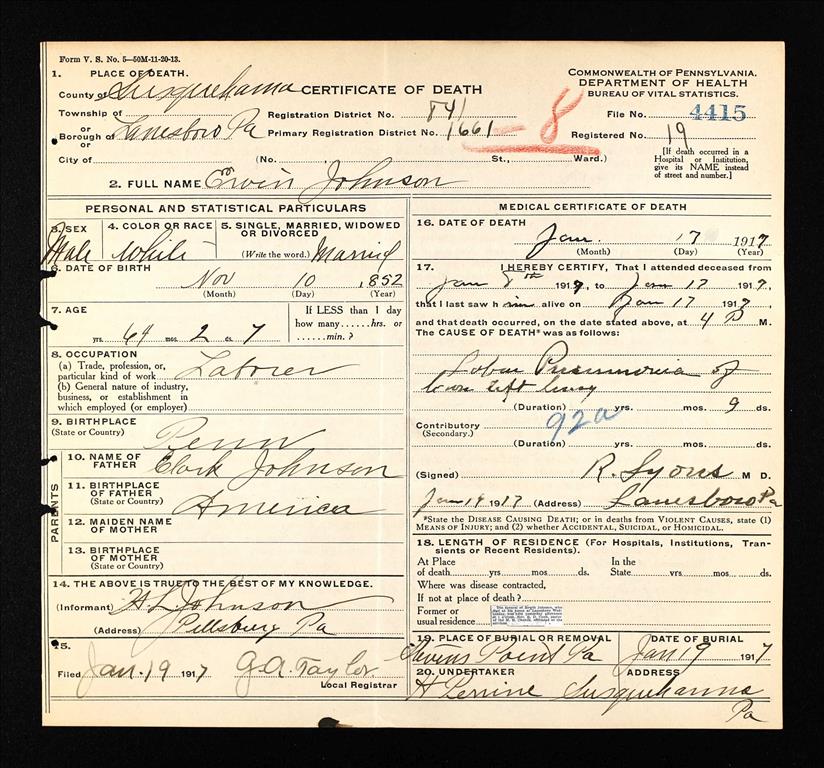 Form V. S. No. 5—50M-11-20-13.
1. PLACE OF DEATH.
County of Susquehanna
CERTIFICATE OF DEATH
COMMONWEALTH OF PENNSYLVANIA.
DEPARTMENT OF HEALTH
BUREAU OF VITAL STATISTICS.
Township of
or
Borough of Lanesboro Pa
or
City of
Registration District No. 841
Primary Registration District No. 1661 - 8
File No. 4415
Registered No. 19
(No. , St., Ward.)
[If death occurred in a
Hospital or Institution,
give its NAME instead
of street and number.]
2. FULL NAME Ervin Johnson
PERSONAL AND STATISTICAL PARTICULARS
3. SEX
Male
4. COLOR OR RACE
White
5. SINGLE, MARRIED, WIDOWED
OR DIVORCED
(Write the word.) Married
6. DATE OF BIRTH
Nov 10, 1852
(Month) (Day) (Year)
7. AGE
yrs. 64 mos. 2 ds. 7
If LESS than 1 day
how many......hrs. or
......min.?
8. OCCUPATION
(a) Trade, profession, or,
particular kind of work Laborer
(b) General nature of industry,
business, or establishment in
which employed (or employer)
9. BIRTHPLACE
(State or Country) Penn
PARENTS
10. NAME OF
FATHER Clark Johnson
11. BIRTHPLACE
OF FATHER
(State or Country) America
12. MAIDEN NAME
OF MOTHER
13. BIRTHPLACE
OF MOTHER
(State or Country)
14. THE ABOVE IS TRUE TO THE BEST OF MY KNOWLEDGE.
(Informant) H L Johnson
(Address) Pittsburg Pa
15.
Filed Jan. 19 1917 G. A. Taylor
Local Registrar
MEDICAL CERTIFICATE OF DEATH
16. DATE OF DEATH
Jan. 17 1917
(Month) (Day) (Year)
17. I HEREBY CERTIFY, That I attended deceased from
Jan 8th 1917, to Jan 17 1917,
that I last saw him alive on Jan 17 1917,
and that death occurred, on the date stated above, at 4 P M.
The CAUSE OF DEATH* was as follows:
Lobar Pneumonia of
lower left lung
(Duration) yrs. mos. 9 ds.
92a
Contributory
(Secondary.)
(Duration) yrs. mos. ds.
(Signed) R. Lyons M D.
Jan 19 1917 (Address) Lanesboro Pa
*State the DISEASE CAUSING DEATH; or in deaths from VIOLENT CAUSES, state (1)
MEANS OF INJURY; and (2) whether ACCIDENTAL, SUICIDAL, or HOMICIDAL.
18. LENGTH OF RESIDENCE (For Hospitals, Institutions, Tran-
sients or Recent Residents).
At Place
of death yrs. mos. ds.
In the
State yrs. mos. ds.
Where was disease contracted,
If not at place of death?
Former or
usual residence
19. PLACE OF BURIAL OR REMOVAL
Stevens Point Pa
DATE OF BURIAL
Jan 19 1917
20. UNDERTAKER
H Perrine
ADDRESS
Susquehanna
Pa